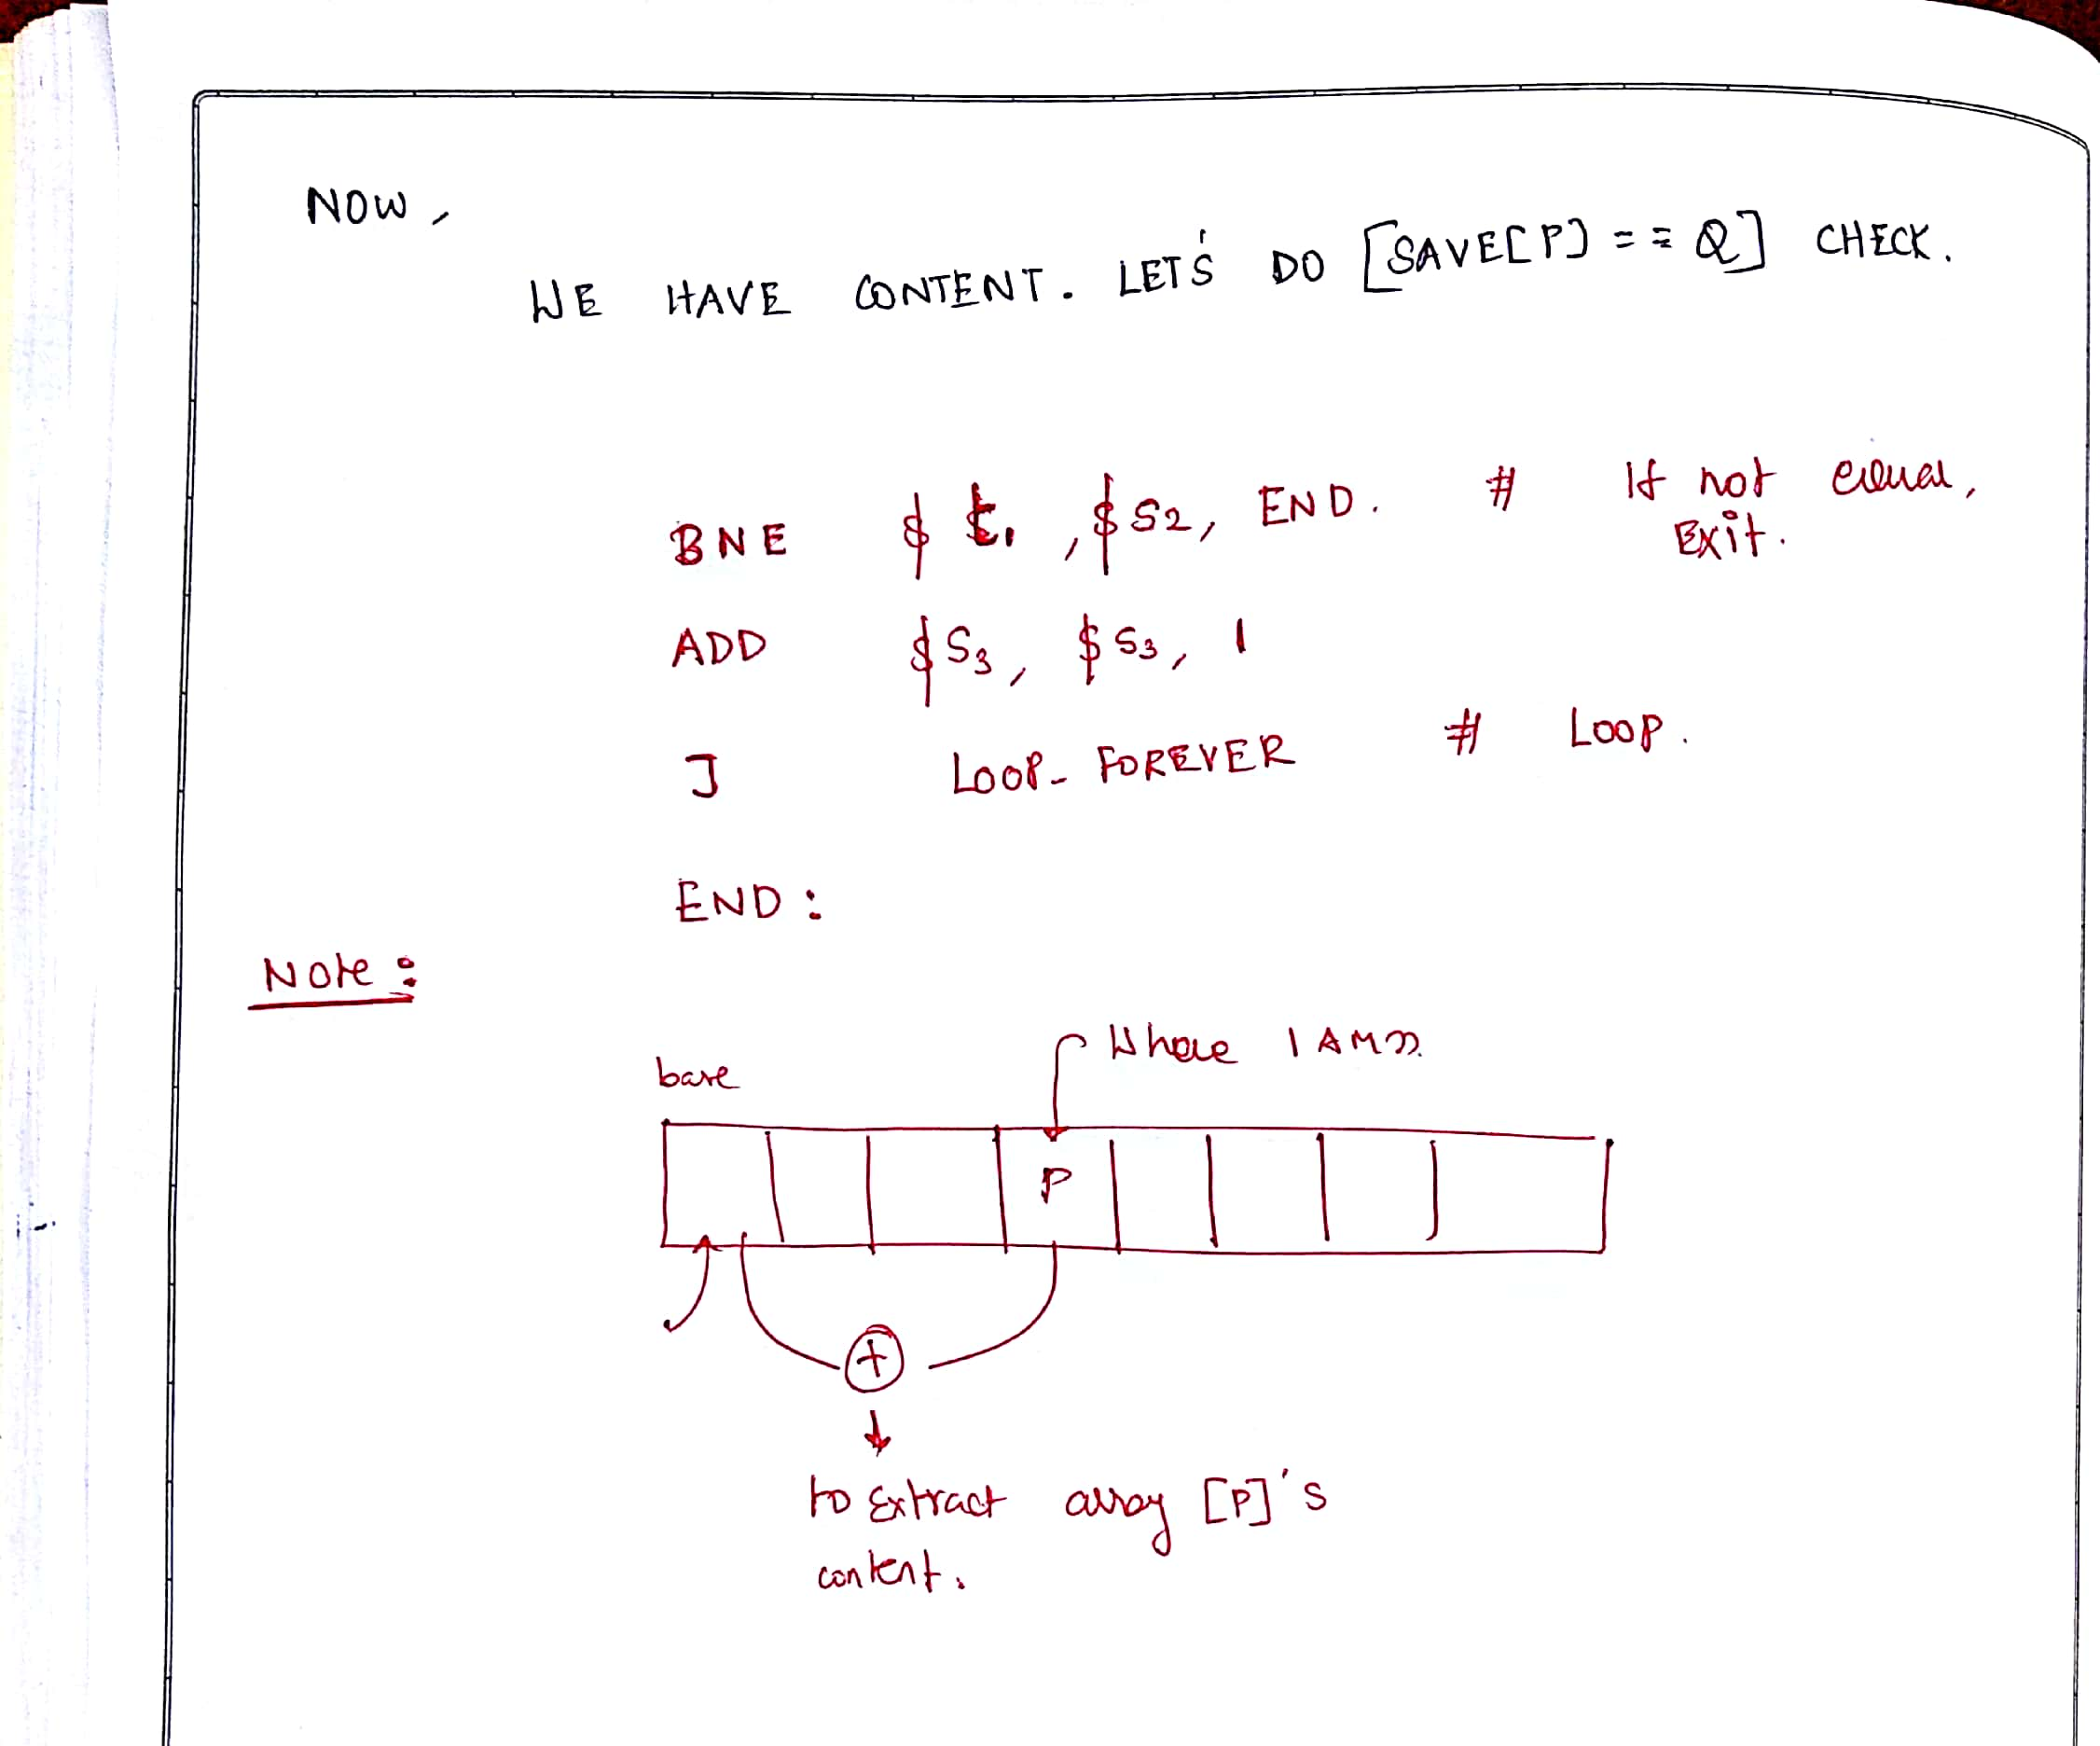 NOW,
WE HAVE CONTENT. LET'S DO [SAVE[P] == Q] CHECK.
BNE $t1, $S2, END. # If not equal,
Exit.
ADD $S3, $S3, 1
J LOOP_FOREVER # LOOP.
END:
Note:
base Where I AM
P
+
to Extract array [P]'s
content.